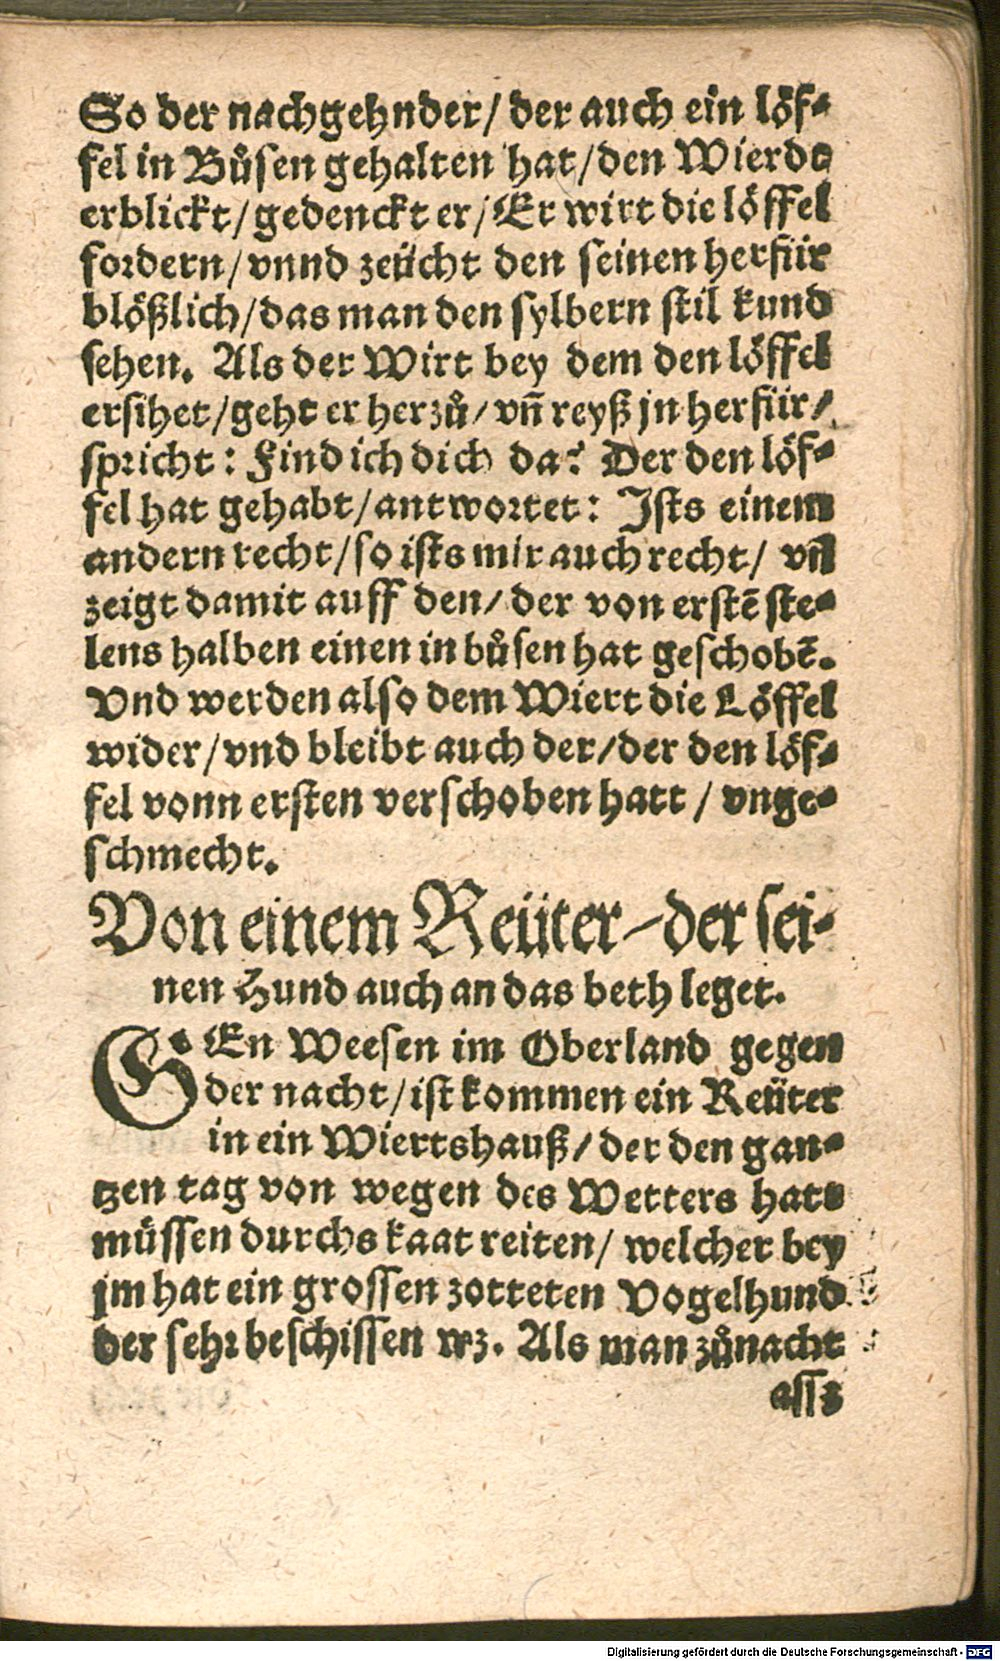 So der nachgehnder/ der auch ein löf-
fel in Bůsen gehalten hat/ den Wierdt
erblickt/ gedenckt er/ Er wirt die löffel
fordern/ vnnd zeücht den seinen herfür
blößlich/ das man den sylbern stil kund
sehen. Als der Wirt bey dem den löffel
ersihet/ geht er herzů/ vñ reyß jn herfür/
spricht: Find ich dich da? Der den löf-
fel hat gehabt/ antwortet: Ists einem
andern recht/ so ists mir auch recht/ vñ
zeigt damit auff den/ der von erstē ste-
lens halben einen in bůsen hat geschobē.
Vnd werden also dem Wiert die Löffel
wider/ vnd bleibt auch der/ der den löf-
fel vonn ersten verschoben hatt/ vnge-
schmecht.
Von einem Reüter/ der sei-
nen Hund auch an das beth leget.
GEn Weesen im Oberland gegen
der nacht/ ist kommen ein Reüter
in ein Wiertshauß/ der den gan-
tzen tag von wegen des Wetters hatt
müssen durchs kaat reiten/ welcher bey
jm hat ein grossen zotteten Vogelhund
der sehr beschissen wz. Als man zůnacht
ass
Digitalisierung gefördert durch die Deutsche Forschungsgemeinschaft - DFG